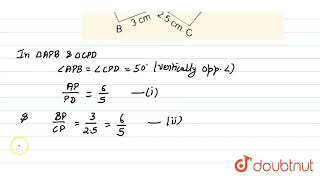 B 3 cm 2.5 cm C
In △APB & △CPD
∠APB = ∠CPD = 50° (vertically opp. ∠)
AP/PD = 6/5 —(i)
& BP/CP = 3/2.5 = 6/5 —(ii)
doubtnut